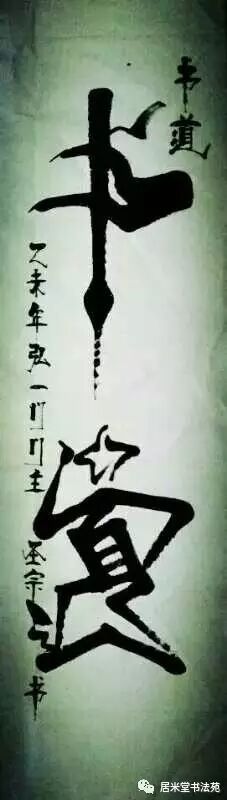 书道
书道
乙未年弘一门门主
圣宗 书
居米堂书法苑